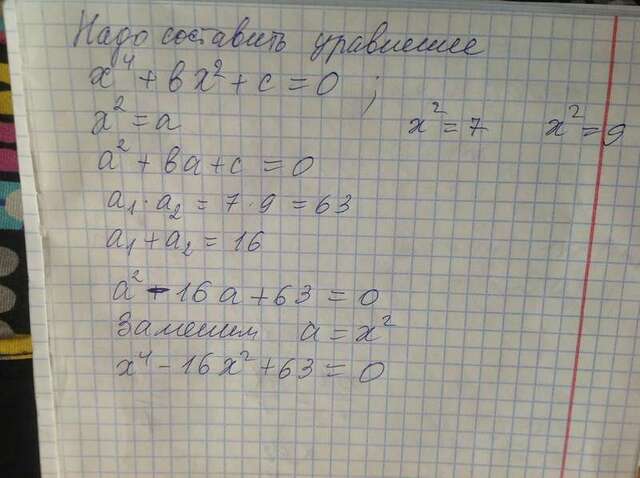 Надо составить уравнение
x⁴ + вx² + c = 0 ;
x² = a x² = 7 x² = 9
a² + вa + c = 0
a₁ · a₂ = 7 · 9 = 63
a₁ + a₂ = 16
a² - 16a + 63 = 0
Заменим a = x²
x⁴ - 16x² + 63 = 0